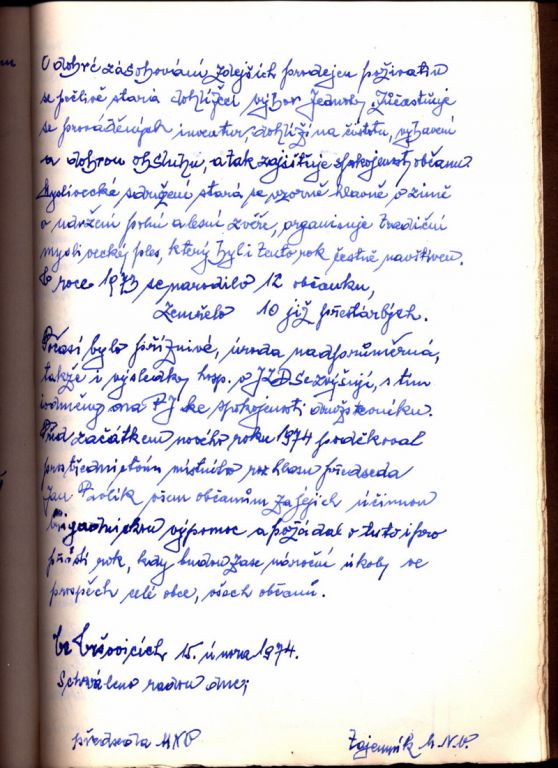 O dobré zásobování zdejších prodejen poživatin
se pečlivě stará dohlížecí výbor Jednoty. Zúčastňuje
se prováděných inventur, dohlíží na čistotu, vybavení
a dobrou obsluhu, a tak zajišťuje spokojenost občanů.
Myslivecké sdružení stará se vzorně hlavně v zimě
o udržení polní a lesní zvěře, organisuje tradiční
myslivecký ples, který byl i tento rok četně navštíven.
V roce 1973 se narodilo 12 občánků,
Zemřelo 10 již přestárlých.
Počasí bylo příznivé, úroda nadprůměrná,
takže i výsledky hosp. v JZD se zvyšují, s tím
i odměny na PJ ke spokojenosti družstevníků.
Před začátkem nového roku 1974 poděkoval
prostřednictvím místního rozhlasu předseda
Jan Pavlík všem občanům za jejich účinnou
brigádnickou výpomoc a požádal o tuto i pro
příští rok, kdy budou zase náročné úkoly ve
prospěch celé obce, všech občanů.
15. února 1974.
Schváleno radou dne:
předseda MNV
tajemník M.N.V.